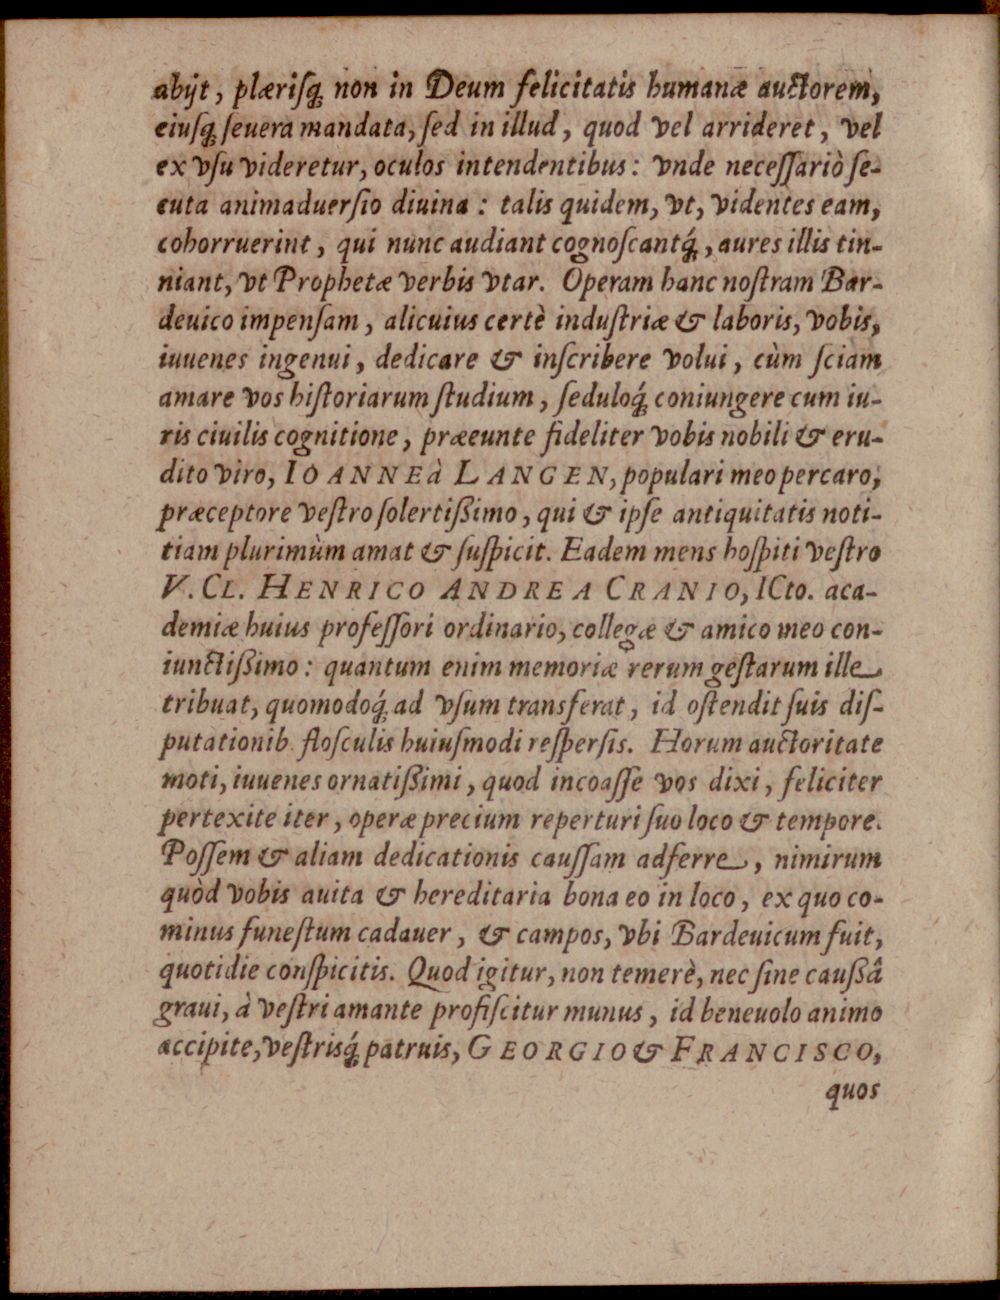 abijt, plæriſq; non in Deum felicitatis humanæ auctorem,
eiuſq; ſeuera mandata, ſed in illud, quod vel arrideret, vel
ex vſu videretur, oculos intendentibus: vnde neceſſariò ſe-
cuta animaduerſio diuina: talis quidem, vt, videntes eam,
cohorruerint, qui nunc audiant cognoſcantq́;, aures illis tin-
niant, vt Prophetæ verbis vtar. Operam hanc noſtram Bar-
deuico impenſam, alicuius certè induſtriæ & laboris, vobis,
iuuenes ingenui, dedicare & inſcribere volui, cùm ſciam
amare vos hiſtoriarum ſtudium, ſeduloq́; coniungere cum iu-
ris ciuilis cognitione, præeunte fideliter vobis nobili & eru-
dito viro, IOANNE à LANGEN, populari meo percaro,
præceptore veſtro ſolertißimo, qui & ipſe antiquitatis noti-
tiam plurimùm amat & ſuſpicit. Eadem mens hoſpiti veſtro
V. CL. HENRICO ANDREA CRANIO, ICto. aca-
demiæ huius profeſſori ordinario, collegæ & amico meo con-
iunctißimo: quantum enim memoriæ rerum geſtarum ille
tribuat, quomodoq́; ad vſum transferat, id oſtendit ſuis diſ-
putationib. floſculis huiuſmodi reſperſis. Horum auctoritate
moti, iuuenes ornatißimi, quod incoaſſe vos dixi, feliciter
pertexite iter, operæ precium reperturi ſuo loco & tempore.
Poſſem & aliam dedicationis cauſſam adferre, nimirum
quòd vobis auita & hereditaria bona eo in loco, ex quo co-
minus funeſtum cadauer, & campos, vbi Bardeuicum fuit,
quotidie conſpicitis. Quod igitur, non temerè, nec ſine caußâ
graui, à veſtri amante profiſcitur munus, id beneuolo animo
accipite, veſtrisq́; patruis, GEORGIO & FRANCISCO,
quos